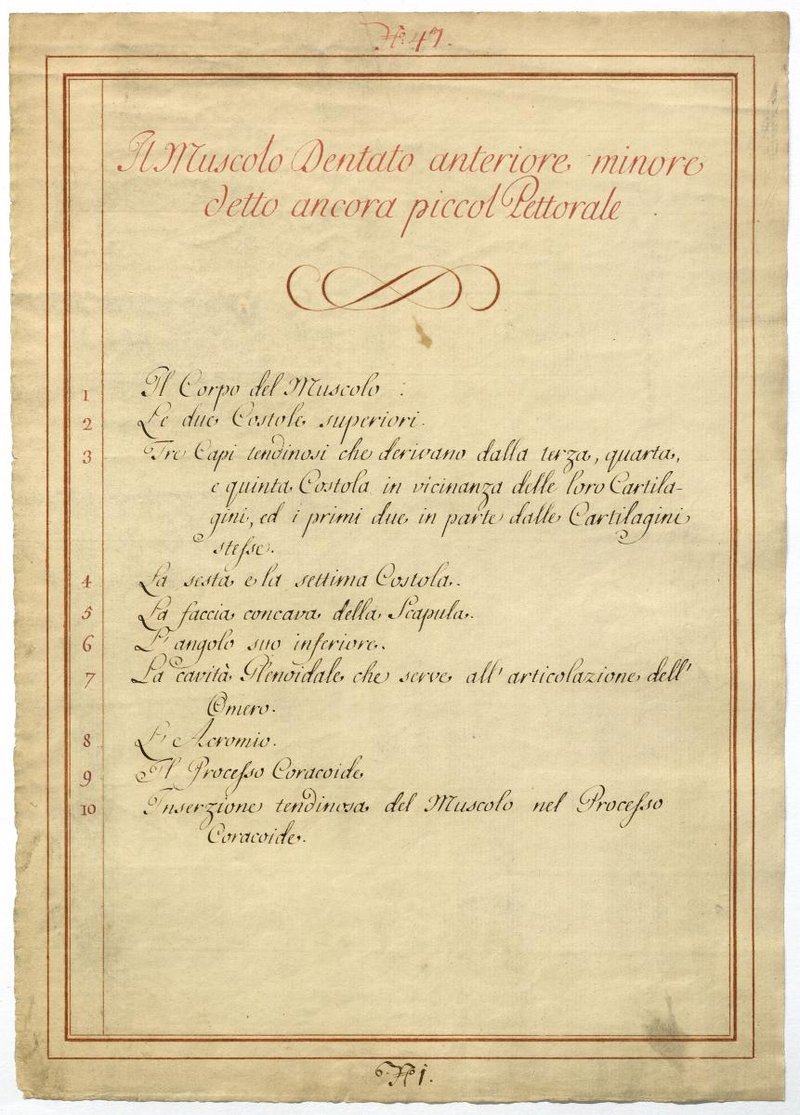 N.º 47.
Il Muscolo Dentato anteriore minore
detto ancora piccol Pettorale
1 Il Corpo del Muscolo.
2 Le due Costole superiori.
3 Tre Capi tendinosi che derivano dalla terza, quarta,
e quinta Costola in vicinanza delle loro Cartila-
gini, ed i primi due in parte dalle Cartilagini
stesse.
4 La sesta e la settima Costola.
5 La faccia concava della Scapula.
6 L'angolo suo inferiore.
7 La cavità Glenoidale che serve all'articolazione dell'
Omero.
8 L'Acromio.
9 Il Processo Coracoide
10 Inserzione tendinosa del Muscolo nel Processo
Coracoide.
N.º 1.